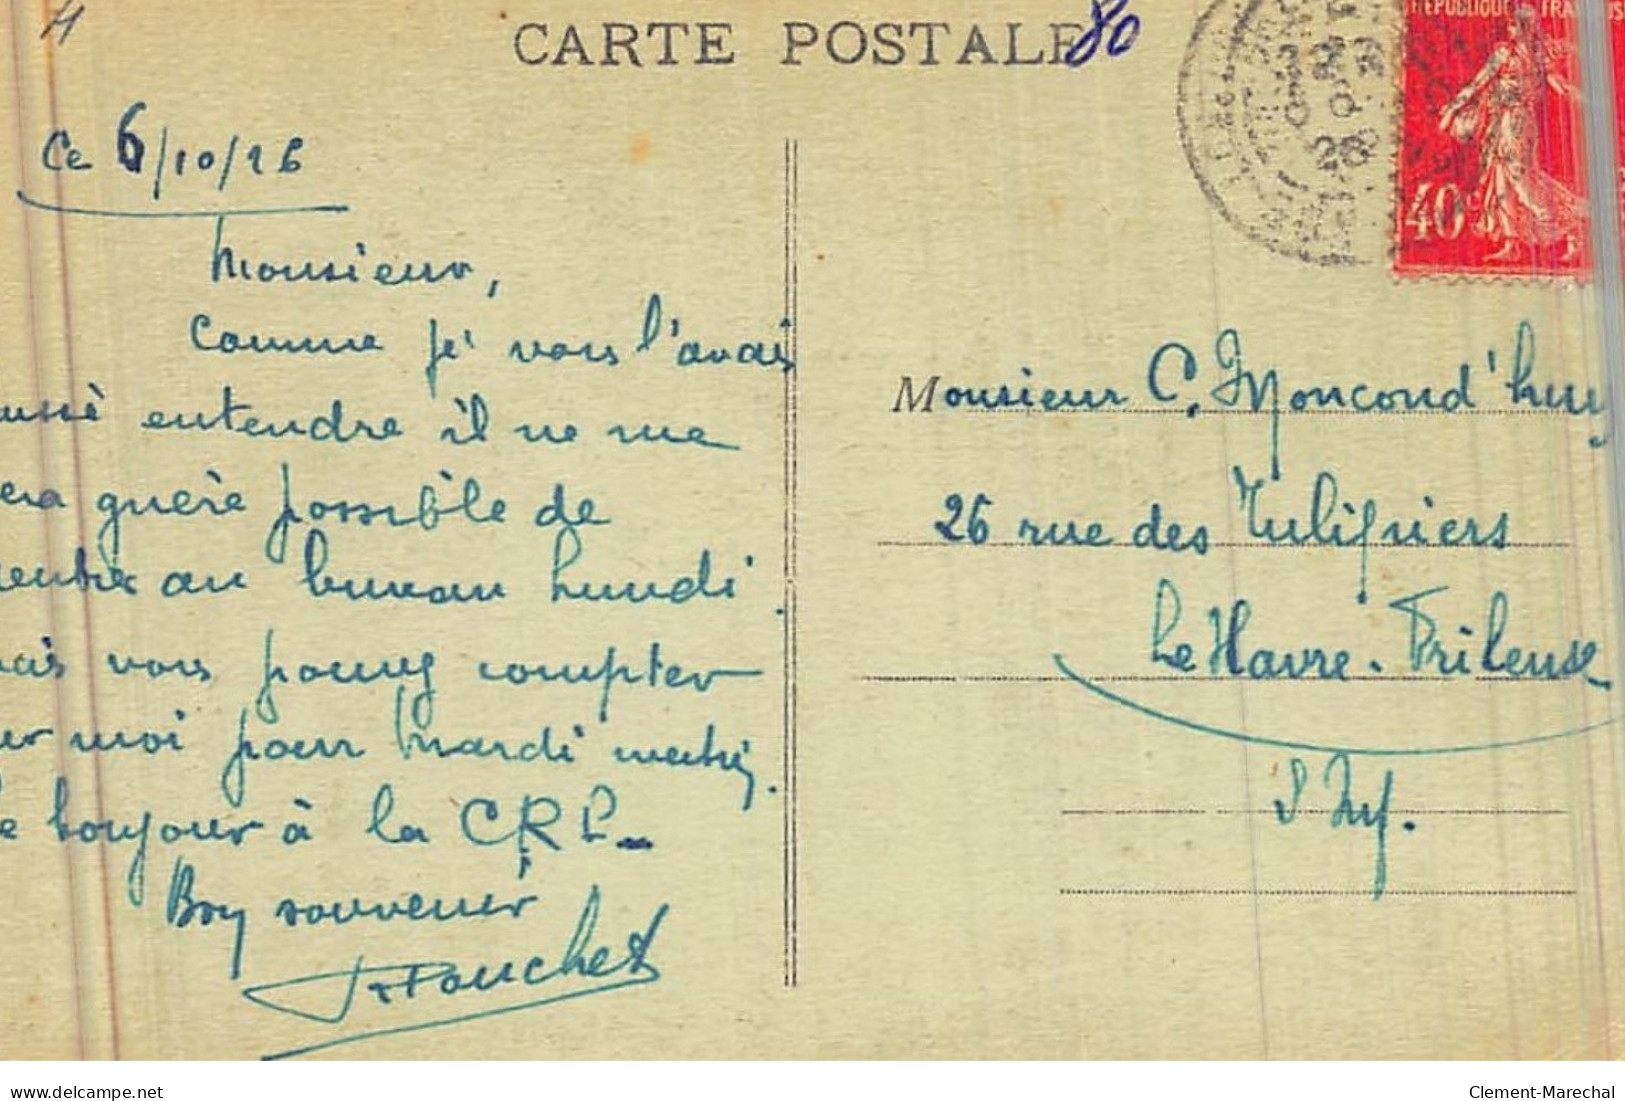 CARTE POSTALE
80
RÉPUBLIQUE FRANÇAIS
40c
Ce 6/10/26
Monsieur,
Comme je vous l'avais
entendre il ne me
guère possible de
au bureau Lundi.
vous pouvez compter
moi pour Mardi matin.
bonjour à la CRL
Bon souvenir
Monsieur C. Moncond'huy
26 rue des Tulipiers
Le Havre. Frileuse
S Inf.
www.delcampe.net
Clement-Marechal